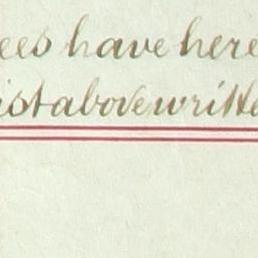 ees have here
ist above writte